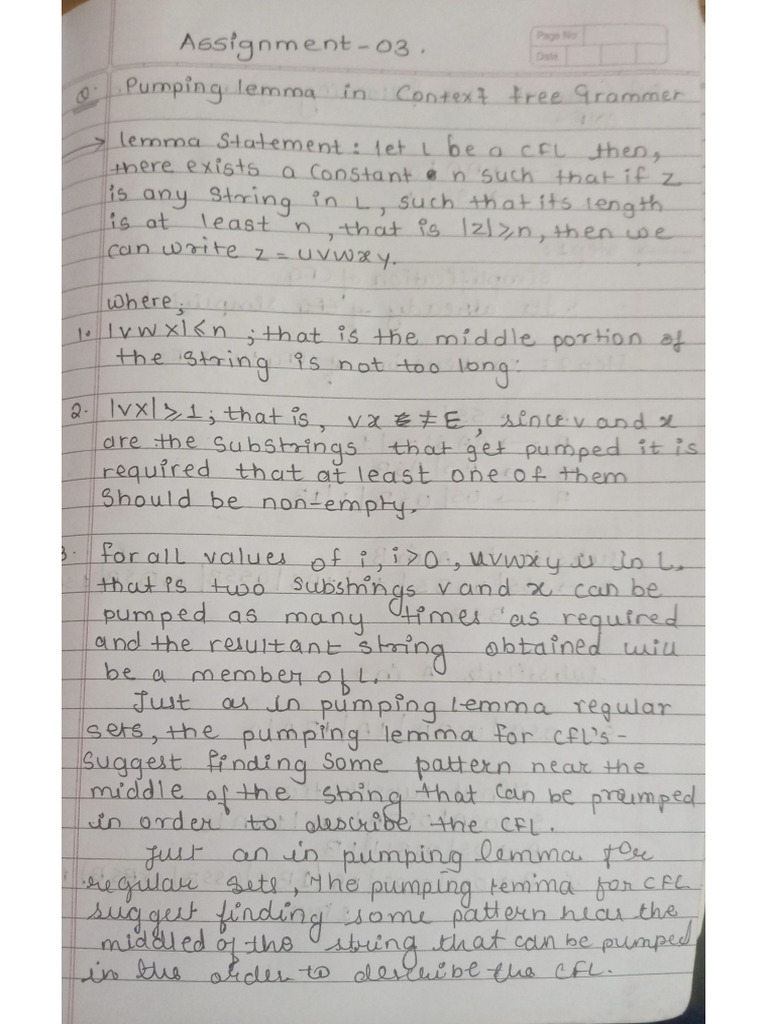 Assignment-03.
Page No:
Date
Q. Pumping lemma in Context free Grammer
→ lemma Statement: let L be a CFL then,
there exists a constant n such that if z
is any string in L, such that its length
is at least n, that is |z|≥n, then we
can write z = uvwxy.
where,
1. |vwx|≤n ; that is the middle portion of
the string is not too long:
2. |vx|≥1; that is, vx ≠ E, since v and x
are the substrings that get pumped it is
required that at least one of them
should be non-empty.
3. for all values of i, i>0, uvwxy is in L,
that is two substrings v and x can be
pumped as many times as required
and the resultant string obtained will
be a member of L.
Just as in pumping lemma regular
sets, the pumping lemma for CFL's-
suggest finding some pattern near the
middle of the string that can be prumped
in order to describe the CFL.
Just an in pumping lemma for
regular sets, The pumping lemma for CFL
suggest finding some pattern near the
middled of the string that can be pumped
in the order to describe the CFL.